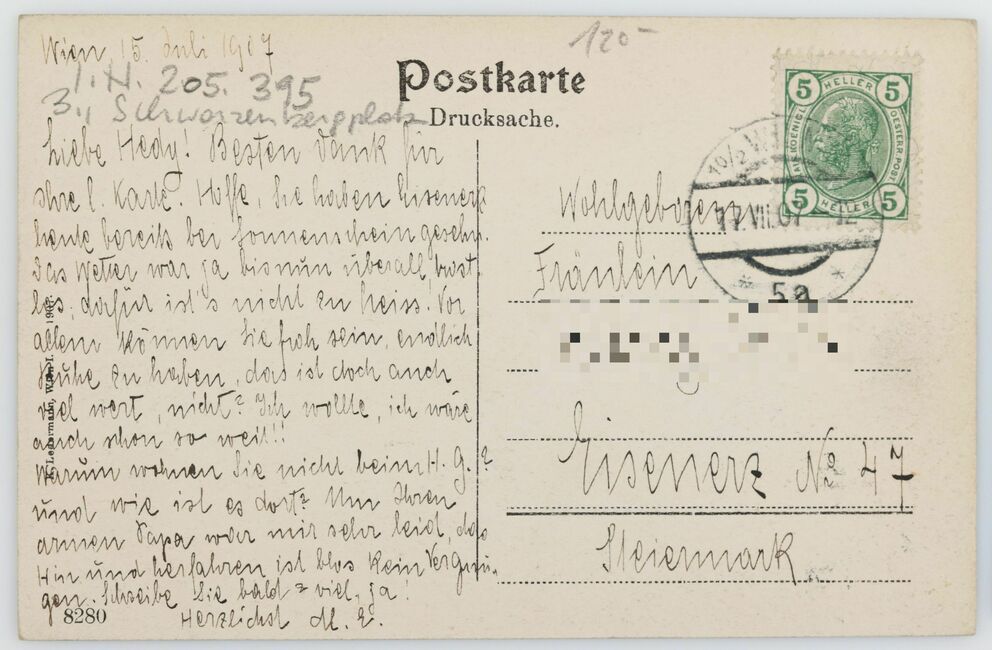 Wien 15. Juli 1907
I.N. 205.395
3., Schwarzenbergplatz
120-
Postkarte
Drucksache.
Liebe Hedy! Besten Dank für
Ihre l. Karte. Hoffe, Sie haben Eisenerz
heute bereits bei Sonnenschein gesehn.
Das Wetter war ja bis nun überall trost-
los; dafür ist's nicht zu heiss! Vor
allem können Sie froh sein, endlich
Ruhe zu haben, das ist doch auch
viel wert, nicht? Ich wollte, ich wäre
auch schon so weit!!
Warum wohnen Sie nicht beim H. G.?
und wie ist es dort? Um Ihren
armen Papa war mir sehr leid, das
Hin und herfahren ist blos kein Vergnü-
gen. Schreibe Sie bald & viel, ja!
Herzlichst M. E.
8280
HELLER
5 5
OESTERR. POST
5 HELLER 5
10/2 WIEN
17.VII.07
5a
Wohlgeboren
Fräulein
Eisenerz No 47
Steiermark